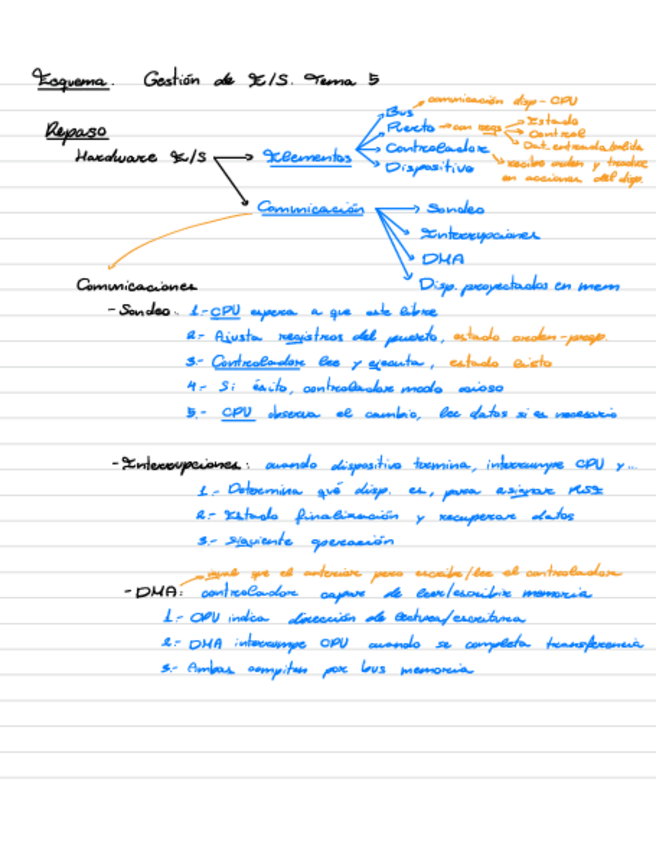 Esquema. Gestión de E/S. Tema 5
Repaso
Hardware E/S → Elementos
Bus → comunicación disp-CPU
Puerto → con regs → Estado
Control
Dat. entrada/salida
Controlador
recibe orden y traduce
en acciones del disp.
Dispositivo
Comunicación → Sondeo
Interrupciones
DMA
Disp. proyectados en mem
Comunicaciones
- Sondeo: 1- CPU espera a que este libre
2- Ajusta registros del puerto, estado orden-prep.
3- Controlador lee y ejecuta, estado listo
4- Si éxito, controlador modo ocioso
5- CPU observa el cambio, lee datos si es necesario
- Interrupciones: cuando dispositivo termina, interrumpe CPU y...
1- Determina qué disp. es, para asignar RSI
2- Estado finalización y recuperar datos
3- Siguiente operación
igual que el anterior pero escribe/lee el controlador
- DMA: controlador capaz de leer/escribir memoria
1- CPU indica dirección de lectura/escritura
2- DMA interrumpe CPU cuando se completa transferencia
3- Ambas compiten por bus memoria